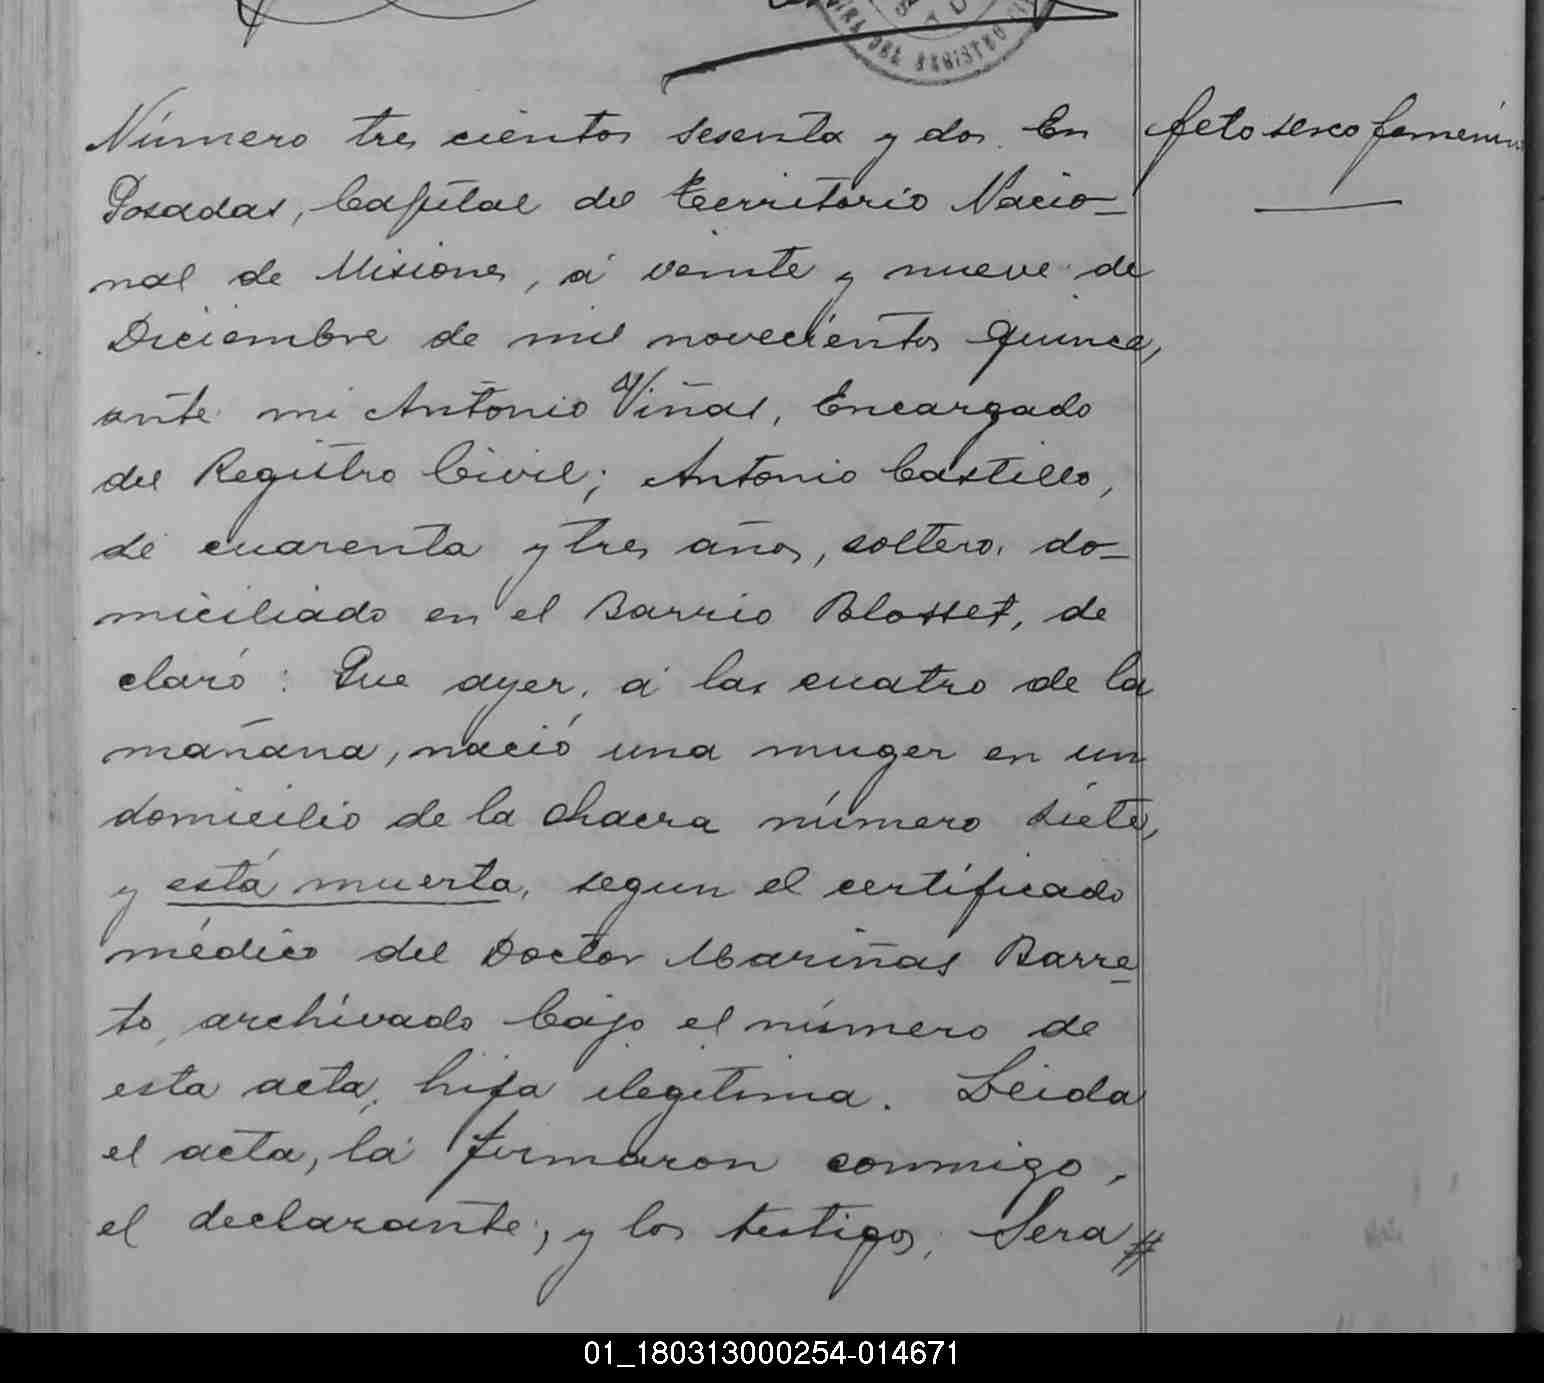 Número tres cientos sesenta y dos. En
Posadas, Capital del Territorio Nacio-
nal de Misiones, á veinte y nueve de
Diciembre de mil novecientos quince,
ante mi Antonio Viñas, Encargado
del Registro Civil; Antonio Castillo,
de cuarenta y tres años, soltero, do-
miciliado en el Barrio Blosset, de
claró: Que ayer, á las cuatro de la
mañana, nació una muger en un
domicilio de la chacra número siete,
y está muerta, segun el certificado
médico del Doctor Mariñas Barre-
to, archivado bajo el número de
esta acta, hija ilegítima. Leida
el acta, la firmaron conmigo,
el declarante, y los testigos, Sera
feto sexo femenino
DEL REGISTRO
01_180313000254-014671